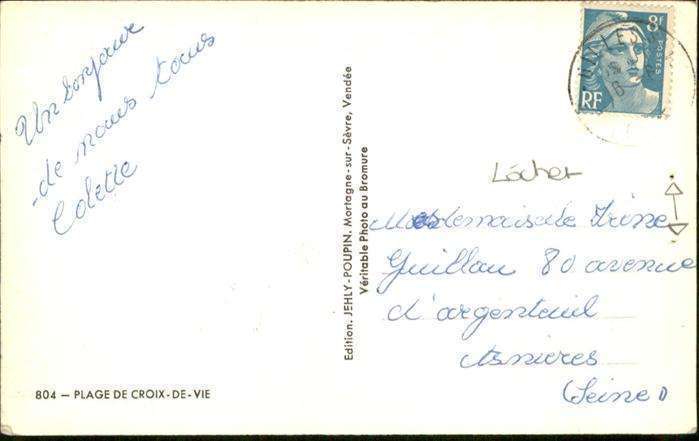 Un bonjour
de nous tous
Colette
804 — PLAGE DE CROIX-DE-VIE
Edition. JEHLY-POUPIN. Mortagne-sur-Sèvre, Vendée
Véritable Photo au Bromure
8f
POSTES
RF
Mademoiselle Irène
Guillou 80 avenue
d'argenteuil
Asnieres
(Seine)